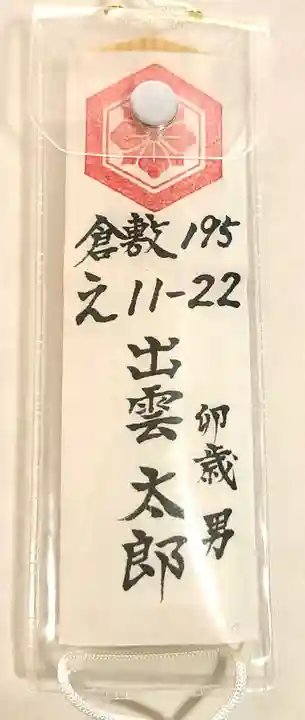 倉敷 195
え 11-22
出雲 太郎
卯歳 男